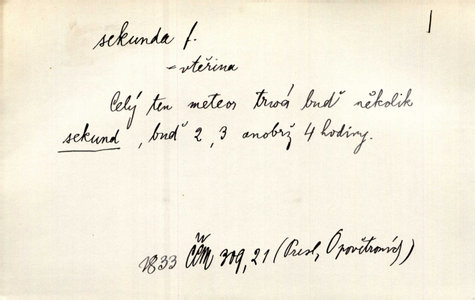 sekunda f.
– vteřina
Celý ten meteor trvá buď několik
sekund, buď 2, 3 anobrž 4 hodiny.
1833 ČČM 309, 21 (Presl, O povětroních)